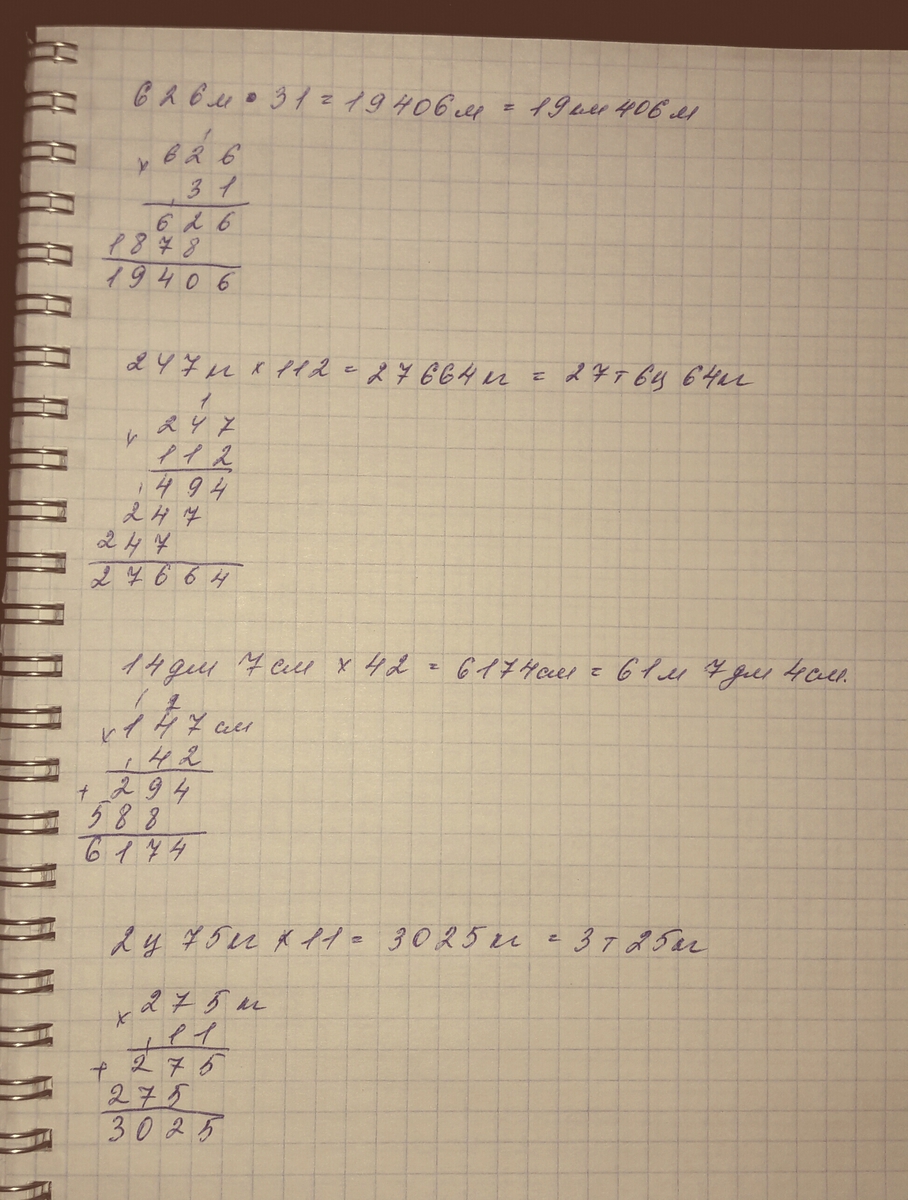 626м • 31 = 19406м = 19км 406м
1
× 626
31
626
1878
19406
247кг × 112 = 27664кг = 27т 6ц 64кг
1
× 247
112
1 494
247
247
27664
14дм 7см × 42 = 6174см = 61м 7дм 4см.
1 2
× 147см
42
+ 294
588
6174
2ц 75кг × 11 = 3025кг = 3т 25кг
× 275 кг
11
+ 275
275
3025